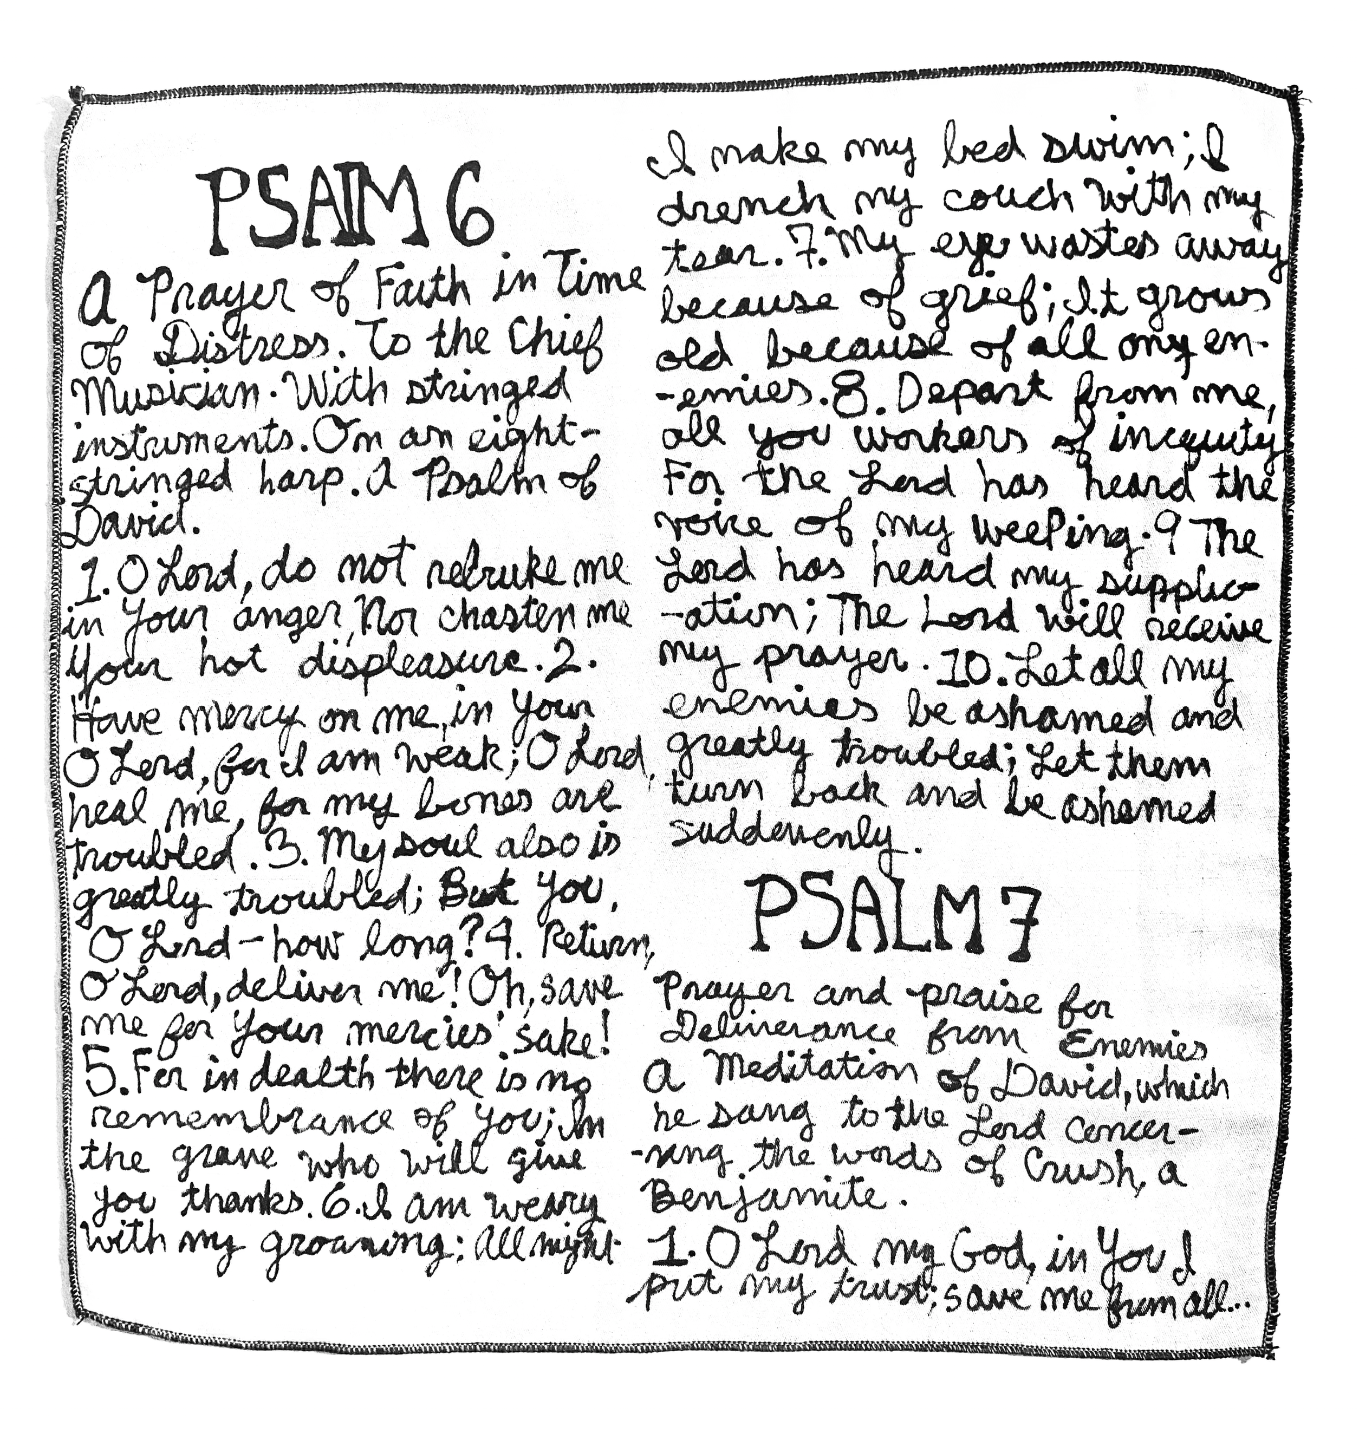 PSALM 6
A Prayer of Faith in Time
of Distress. To the Chief
Musician. With stringed
instruments. On an eight-
stringed harp. A Psalm of
David.
1. O Lord, do not rebruke me
in Your anger, Nor chasten me
Your hot displeasure. 2.
Have mercy on me, in Your
O Lord, for I am weak; O Lord,
heal me, for my bones are
troubled. 3. My soul also is
greatly troubled; But You,
O Lord - how long? 4. Return,
O Lord, deliver me! Oh, save
me for Your mercies' sake!
5. For in dealth there is no
remembrance of You; In
the grave who will give
you thanks. 6. I am weary
with my groaning; All night
I make my bed swim; I
drench my couch with my
tear. 7. My eye wastes away
because of grief; It grows
old because of all my en-
-emies. 8. Depart from me,
all you workers of inequity
For the Lord has heard the
voice of my weeping. 9 The
Lord has heard my supplic-
-ation; The Lord will receive
my prayer. 10. Let all my
enemies be ashamed and
greatly troubled; Let them
turn back and be ashamed
suddenly.
PSALM 7
Prayer and praise for
Deliverance from Enemies
A Meditation of David, which
he sang to the Lord concer-
-ning the words of Crush, a
Benjamite.
1. O Lord my God, in You I
put my trust; save me from all...